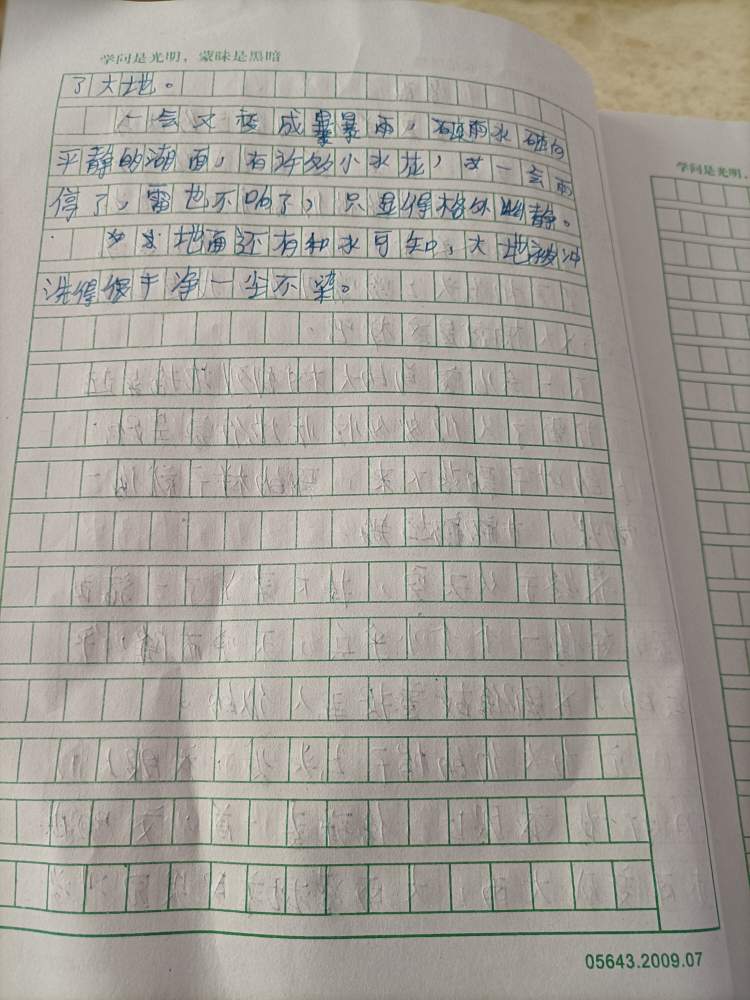 学问是光明，蒙昧是黑暗
了大地。
一会又变成暴雨，雨水
平静的湖面，有许多小水花，一会雨
停了，雷也不响了，只显得格外幽静。
地面还有积水可知，大地被冲
洗得很干净一尘不染。
学问是光明，
05643.2009.07